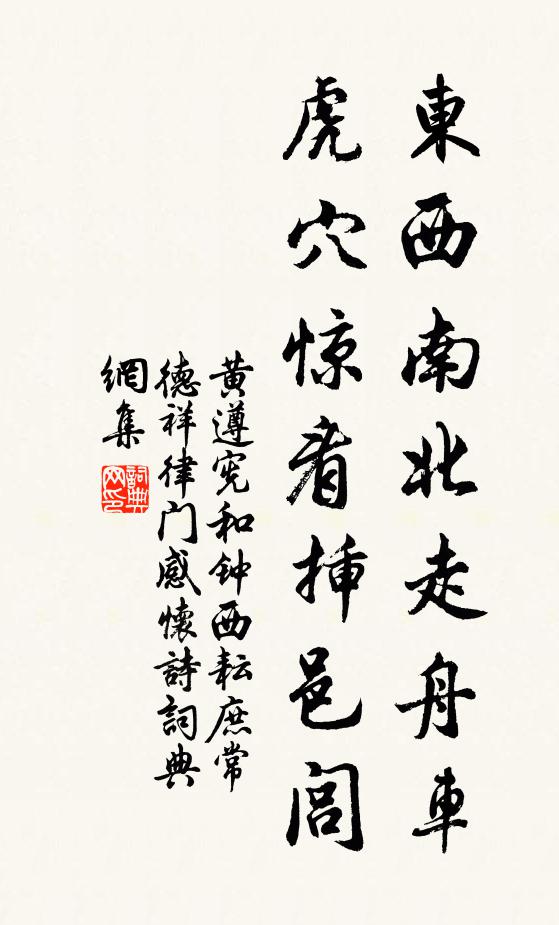 東西南北走舟車
虎穴惊看插邑閭
黃遵宪和钟西耘庶常
德祥律门感懷詩詞典
網集
詞典
网印